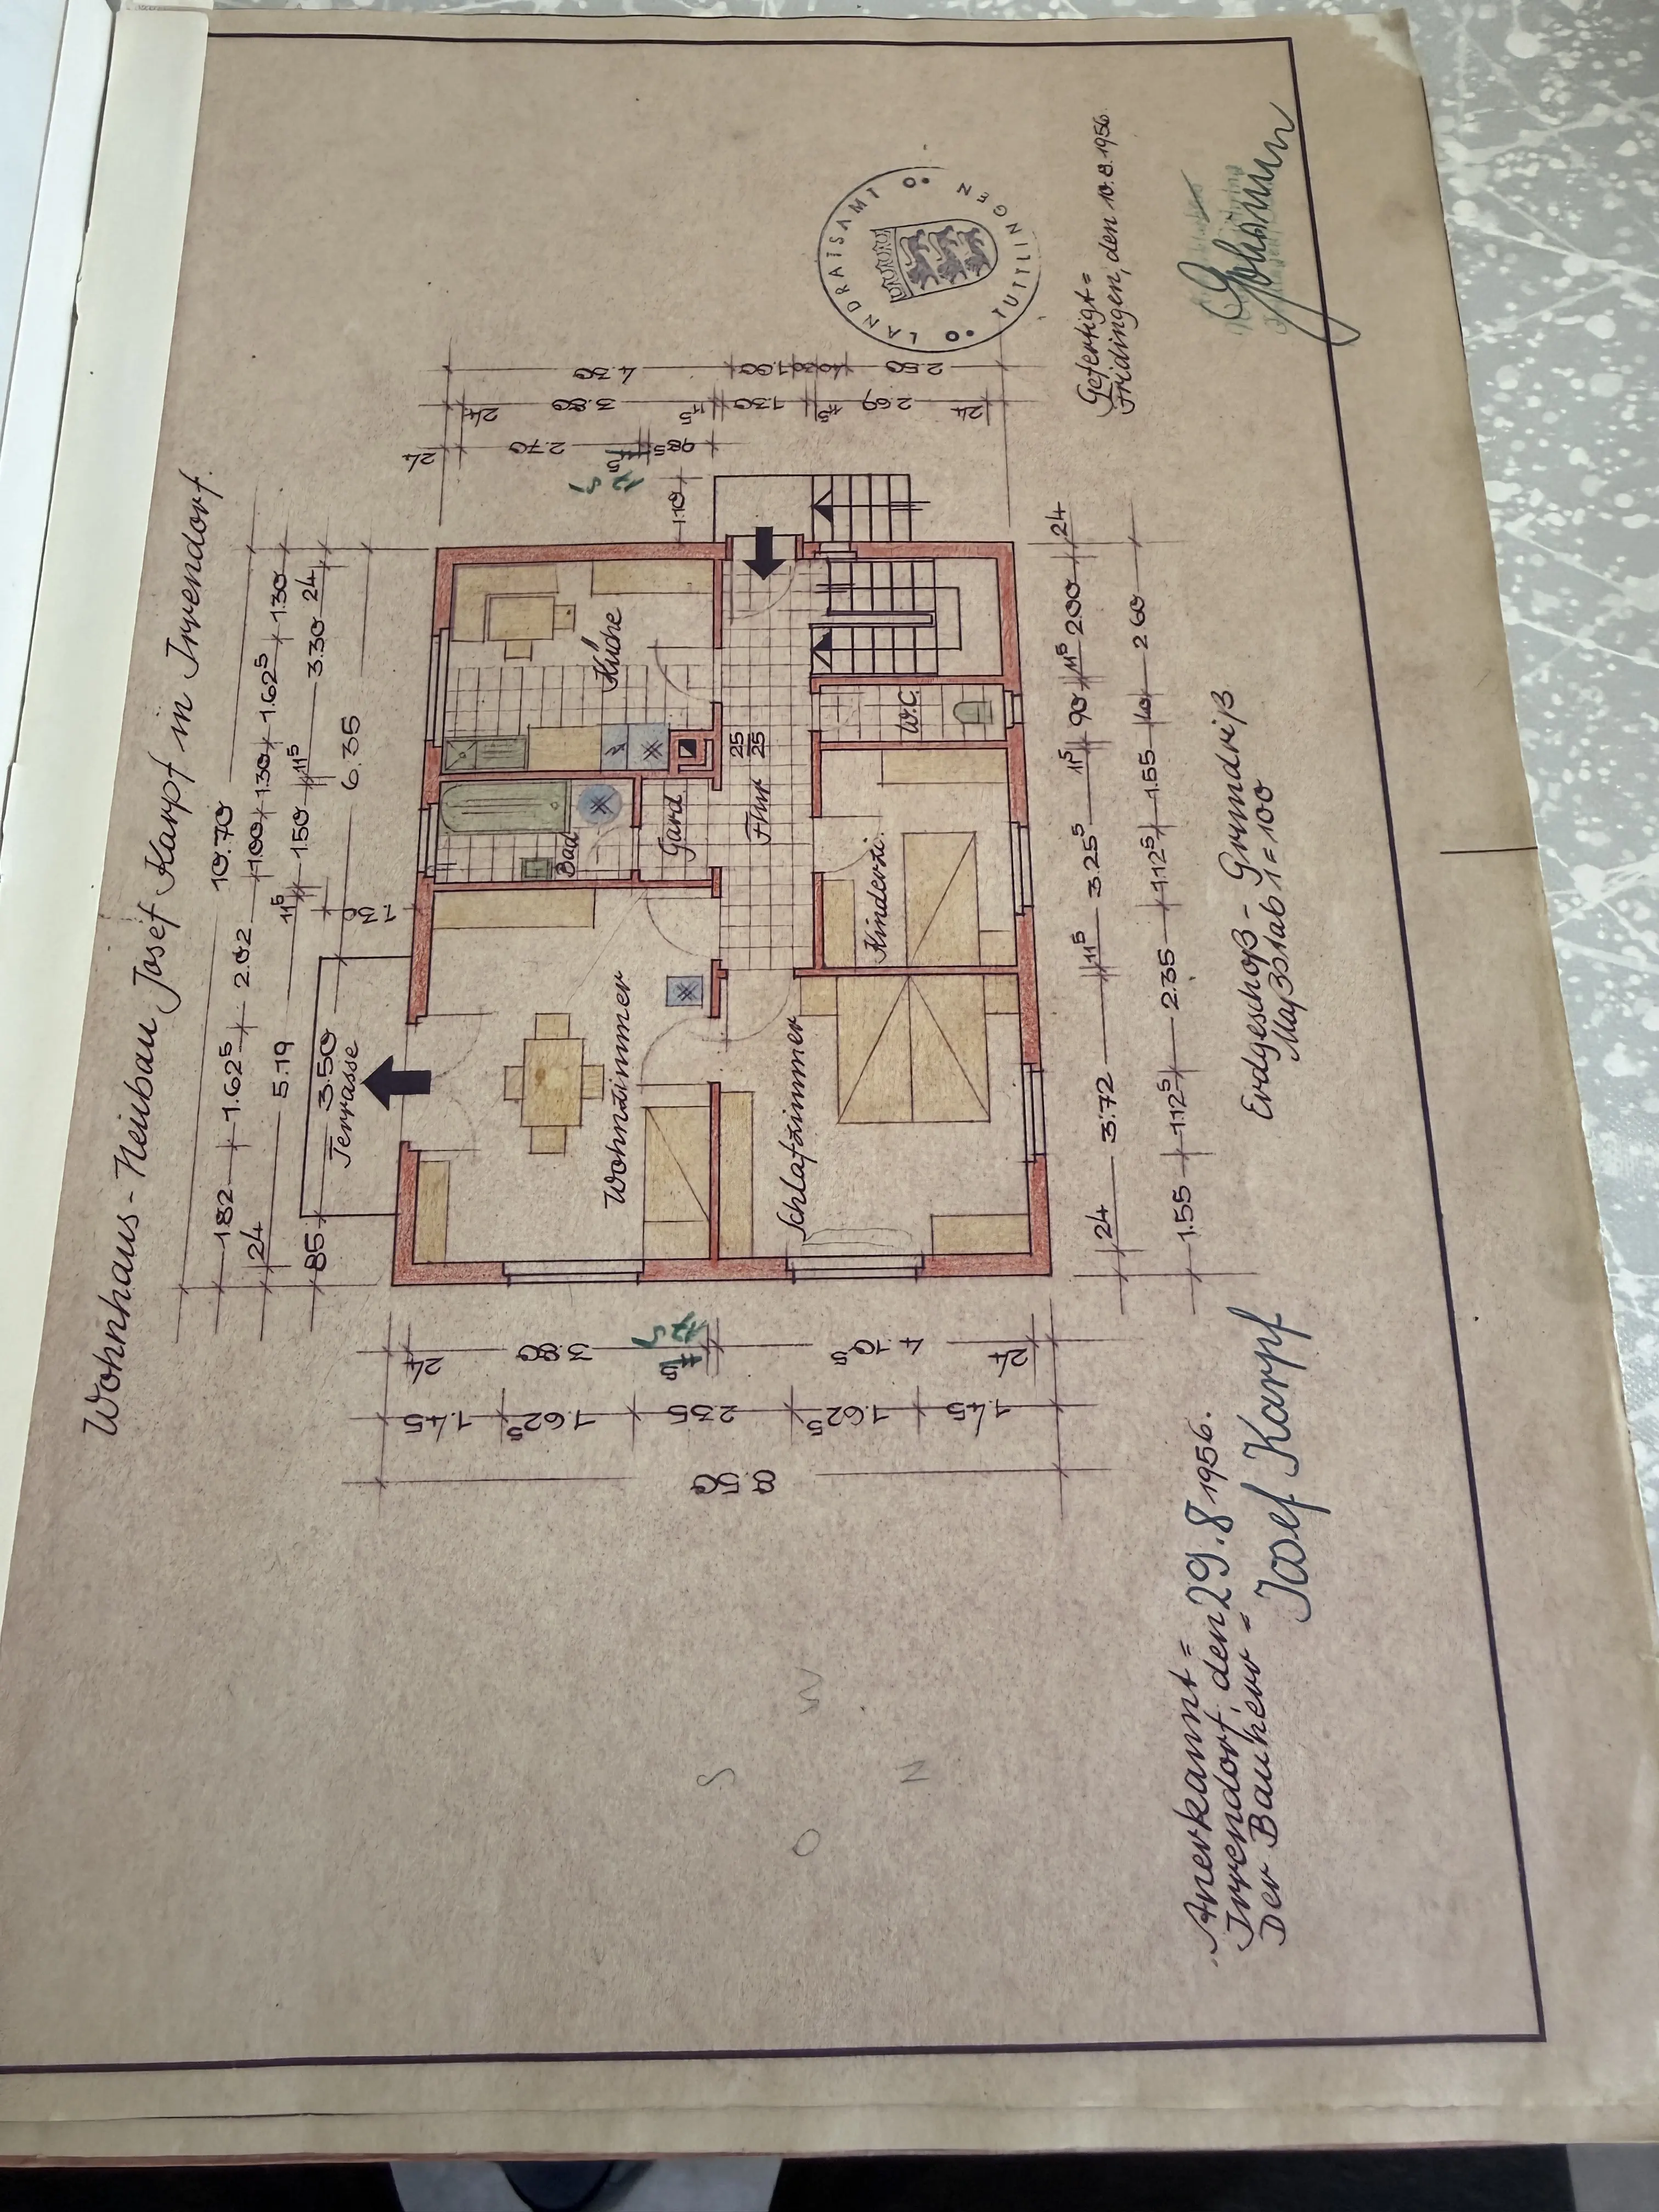 Wohnhaus - Neubau Josef Karpf in Irrendorf.
10.70
1.82 1.62⁵ 2.02 1.00 1.30 1.62⁵ 1.30
24 5.19 11⁵ 1.50 11⁵ 3.30 24
85 3.50 1.30 6.35
Terrasse
Wohnzimmer
Bad
Küche
Gard
Flur
25
25
Schlafzimmer
Kinderzi.
W.C.
24 3.80 17⁵ 4.10⁵ 24
1.45 1.62⁵ 2.35 1.62⁵ 1.45
8.50
24 2.70 17⁵ 98⁵
1.10
24 3.80 11⁵ 1.30 2.69 24
4.30 1.00 2.50
24 3.72 11⁵ 3.25⁵ 11⁵ 90 11⁵ 2.00 24
1.55 1.12⁵ 2.35 1.12⁵ 1.55 40 2.60
Erdgeschoß - Grundriß
Maßstab 1=100
LANDRATSAMT
TUTTLINGEN
Gefertigt =
Fridingen, den 10.8.1956.
Anerkannt =
Irrendorf, den 29.8.1956.
Der Bauherr =
Josef Karpf
S
W
O
N